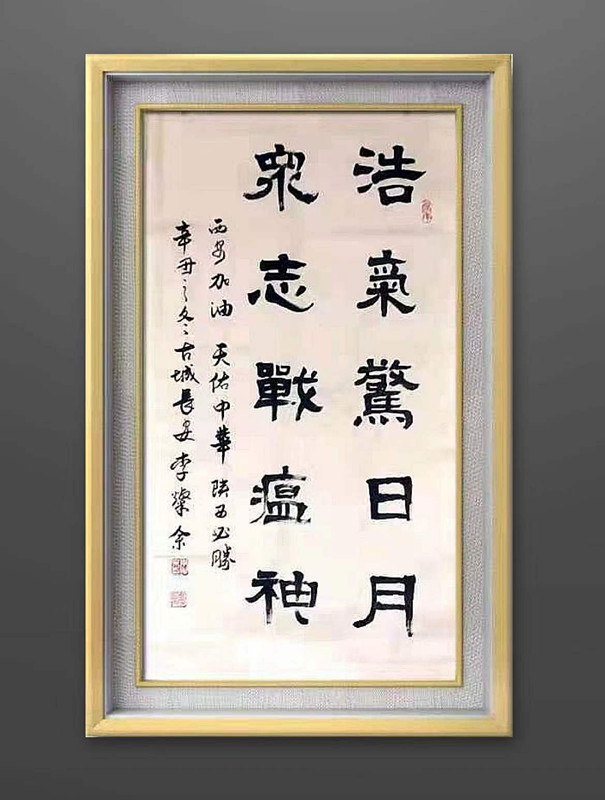 浩氣驚日月
衆志戰瘟神
西安加油 天佑中華 陝西必勝
辛丑之冬古城長安李燦余